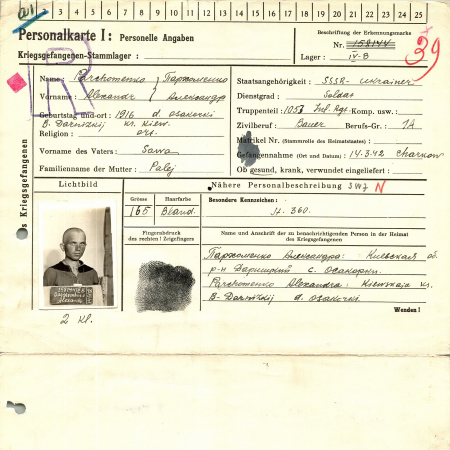 1 2 3 4 5 6 7 8 9 10 11 12 13 14 15 16 17 18 19 20 21 22 23 24 25
Personalkarte I: Personelle Angaben
Kriegsgefangenen-Stammlager:
Beschriftung der Erkennungsmarke
Nr. 158144
Lager: IV-B
39
R
Name: Parchomenko / Пархоменко
Vorname: Alexandr / Александр
Geburtstag und -ort: 1916 d. Osakorki
B. Darnizkij kr. Kiew.
Religion: ort.
Vorname des Vaters: Sawa
Familienname der Mutter: Palej
Staatsangehörigkeit: SSSR - Ukrainer
Dienstgrad: Soldat
Truppenteil: 1053 Inf. Rgt. Komp. usw.
Zivilberuf: Bauer Berufs-Gr.: 1A
Matrikel Nr. (Stammrolle des Heimatstaates):
Gefangennahme (Ort und Datum): 14.3.42 Charkow
Ob gesund, krank, verwundet eingeliefert:
des Kriegsgefangenen
Lichtbild
Nähere Personalbeschreibung
N
Grösse
165
Haarfarbe
Blond.
Besondere Kennzeichen:
St. 360.
Fingerabdruck
des rechten Zeigefingers
Name und Anschrift der zu benachrichtigenden Person in der Heimat
des Kriegsgefangenen
Пархоменко Александра: Киевская об.
р-н Дарницкий с. Осакорки.
Parchomenko Alexandra: Kiewskaja
B-Darnizkij d. Osakorki.
Wenden!